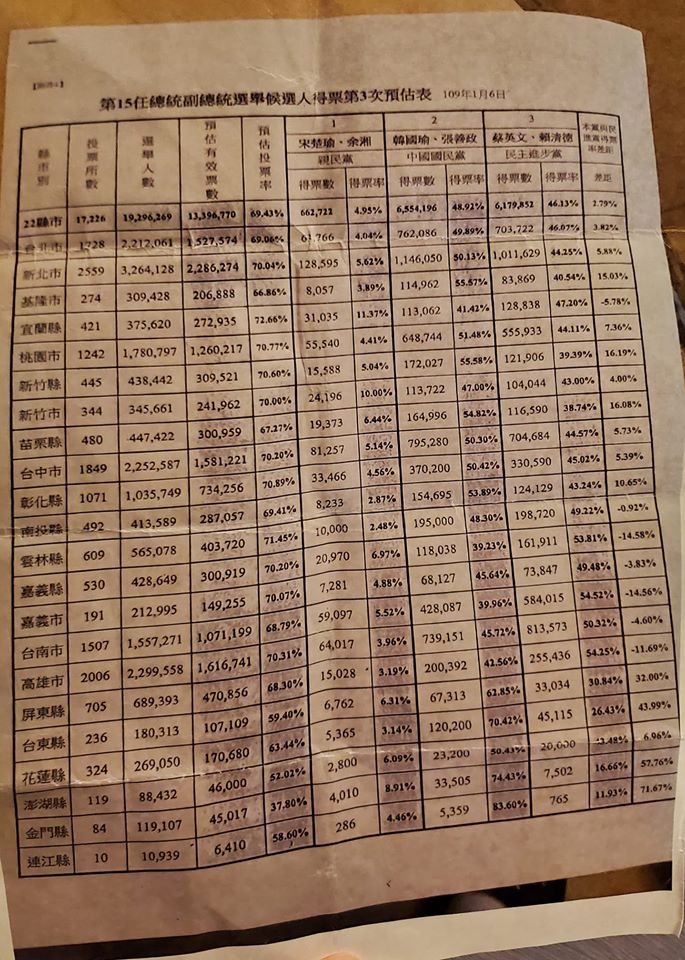 【附件4】
第15任總統副總統選舉候選人得票第3次預估表 109年1月6日
縣市別 投票所數 選舉人數 預估有效票數 預估投票率 1 2 3 本黨與民進黨得票率差距
宋楚瑜、余湘 韓國瑜、張善政 蔡英文、賴清德
親民黨 中國國民黨 民主進步黨
得票數 得票率 得票數 得票率 得票數 得票率 差距
22縣市 17,226 19,296,269 13,396,770 69.43% 662,722 4.95% 6,554,196 48.92% 6,179,852 46.13% 2.79%
台北市 1728 2,212,061 1,527,574 69.06% 61,766 4.04% 762,086 49.89% 703,722 46.07% 3.82%
新北市 2559 3,264,128 2,286,274 70.04% 128,595 5.62% 1,146,050 50.13% 1,011,629 44.25% 5.88%
基隆市 274 309,428 206,888 66.86% 8,057 3.89% 114,962 55.57% 83,869 40.54% 15.03%
宜蘭縣 421 375,620 272,935 72.66% 31,035 11.37% 113,062 41.42% 128,838 47.20% -5.78%
桃園市 1242 1,780,797 1,260,217 70.77% 55,540 4.41% 648,744 51.48% 555,933 44.11% 7.36%
新竹縣 445 438,442 309,521 70.60% 15,588 5.04% 172,027 55.58% 121,906 39.39% 16.19%
新竹市 344 345,661 241,962 70.00% 24,196 10.00% 113,722 47.00% 104,044 43.00% 4.00%
苗栗縣 480 447,422 300,959 67.27% 19,373 6.44% 164,996 54.82% 116,590 38.74% 16.08%
台中市 1849 2,252,587 1,581,221 70.20% 81,257 5.14% 795,280 50.30% 704,684 44.57% 5.73%
彰化縣 1071 1,035,749 734,256 70.89% 33,466 4.56% 370,200 50.42% 330,590 45.02% 5.39%
南投縣 492 413,589 287,057 69.41% 8,233 2.87% 154,695 53.89% 124,129 43.24% 10.65%
雲林縣 609 565,078 403,720 71.45% 10,000 2.48% 195,000 48.30% 198,720 49.22% -0.92%
嘉義縣 530 428,649 300,919 70.20% 20,970 6.97% 118,038 39.23% 161,911 53.81% -14.58%
嘉義市 191 212,995 149,255 70.07% 7,281 4.88% 68,127 45.64% 73,847 49.48% -3.83%
台南市 1507 1,557,271 1,071,199 68.79% 59,097 5.52% 428,087 39.96% 584,015 54.52% -14.56%
高雄市 2006 2,299,558 1,616,741 70.31% 64,017 3.96% 739,151 45.72% 813,573 50.32% -4.60%
屏東縣 705 689,393 470,856 68.30% 15,028 3.19% 200,392 42.56% 255,436 54.25% -11.69%
台東縣 236 180,313 107,109 59.40% 6,762 6.31% 67,313 62.85% 33,034 30.84% 32.00%
花蓮縣 324 269,050 170,680 63.44% 5,365 3.14% 120,200 70.42% 45,115 26.43% 43.99%
澎湖縣 119 88,432 46,000 52.02% 2,800 6.09% 23,200 50.43% 20,000 43.48% 6.96%
金門縣 84 119,107 45,017 37.80% 4,010 8.91% 33,505 74.43% 7,502 16.66% 57.76%
連江縣 10 10,939 6,410 58.60% 286 4.46% 5,359 83.60% 765 11.93% 71.67%